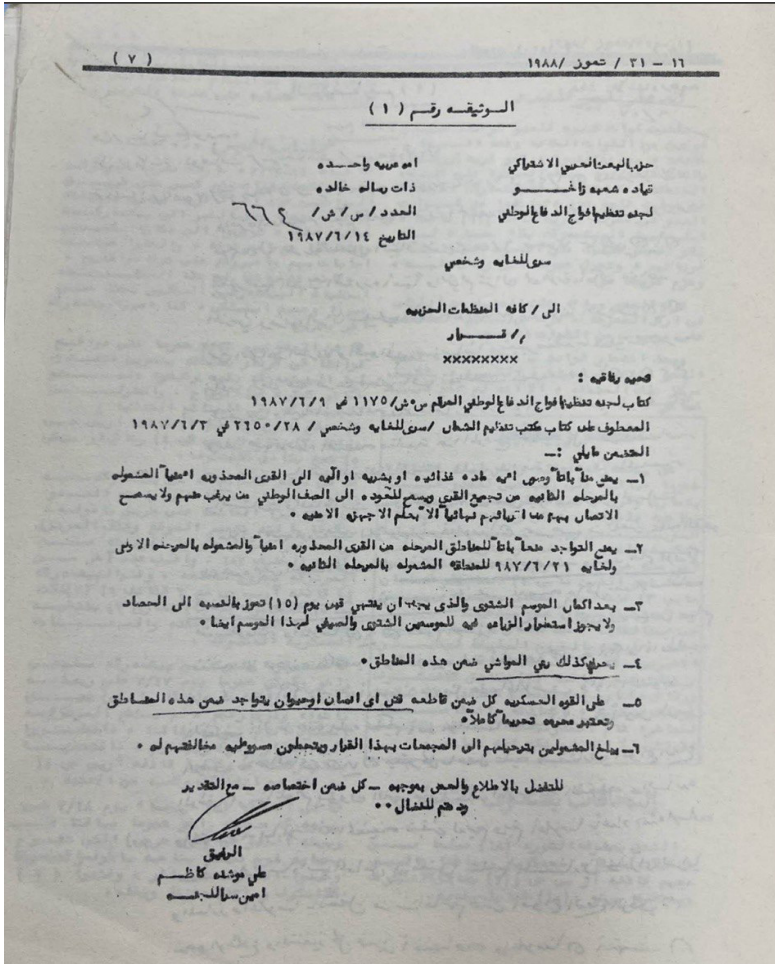 ١٦ – ٣١ / تموز / ١٩٨٨ ( ٧ )
الوثيقه رقم ( ١ )
حزب البعث العربي الاشتراكي امه عربيه واحده
قياده شعبه زاخو ذات رساله خالده
لجنه تنظيم افواج الدفاع الوطني العدد / س / ش / ٦٦٤
التاريخ ١٩٨٧/٦/١٤
سرى للغايه وشخصي
الى / كافه المنظمات الحزبيه
م / قرار
××××××××
تحيه رفاقيه :
كتاب لجنه تنظيم افواج الدفاع الوطني المرقم س ش / ١١٧٥ في ١٩٨٧/٦/٩
المعطوف على كتاب مكتب تنظيم الشمال / سرى للغايه وشخصي / ٢٦٥٠/٢٨ في ١٩٨٧/٦/٣
المتضمن مايلي :ـ
١ـ يمنع منعاً باتاً وصول اميه ماده غذائيه او بشريه او آليه الى القرى المحذوره امنياً المشموله
بالمرحله الثانيه من تجميع القرى ويسمح للعوده الى الصف الوطني من يرغب منهم ولا يسمح
الاتصال بهم من اقربائهم نهائياً الا بعلم الاجهزه الامنيه •
٢ـ يمنع التواجد منعاً باتاً للمناطق المرحله من القرى المحذوره امنياً والمشموله بالمرحله الاولى
ولغايه ٩٨٧/٦/٢١ للمنطقه المشموله بالمرحله الثانيه •
٣ـ بعد اكمال الموسم الشتوى والذى يجب ان ينتهي قبل يوم (١٥) تموز بالنسبه الى الحصاد
ولا يجوز استمرار الزراعه فيه للموسمين الشتوى والصيفي لهذا الموسم ايضا •
٤ـ يحرم كذلك رعي المواشي ضمن هذه المناطق •
٥ـ على القوه العسكريه كل ضمن قاطعه قتل اى انسان او حيوان يتواجد ضمن هذه المناطق
وتعتبر محرمه تحريماً كاملاً •
٦ـ يبلغ المشمولين بترحيلهم الى المجمعات بهذا القرار ويتحملون مسؤوليه مخالفتهم له •
للتفضل بالاطلاع والعمل بموجبه ـ كل ضمن اختصاصه ـ مع التقدير
ودمتم للنضال ••
الرفيق
علي كاظم
امين سر اللجنه